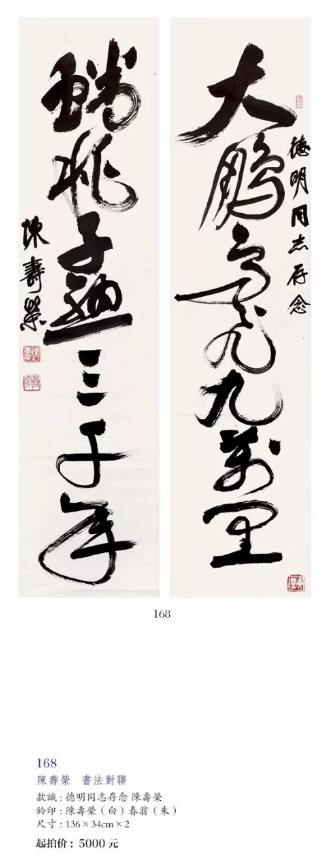 德明同志存念
大鵬鳥飛九萬里
蟠桃子熟三千年
陳壽榮
168
168
陳壽榮 書法對聯
款識：德明同志存念 陳壽榮
鈐印：陳壽榮（白）春翁（朱）
尺寸：136×34cm×2
起拍价：5000 元